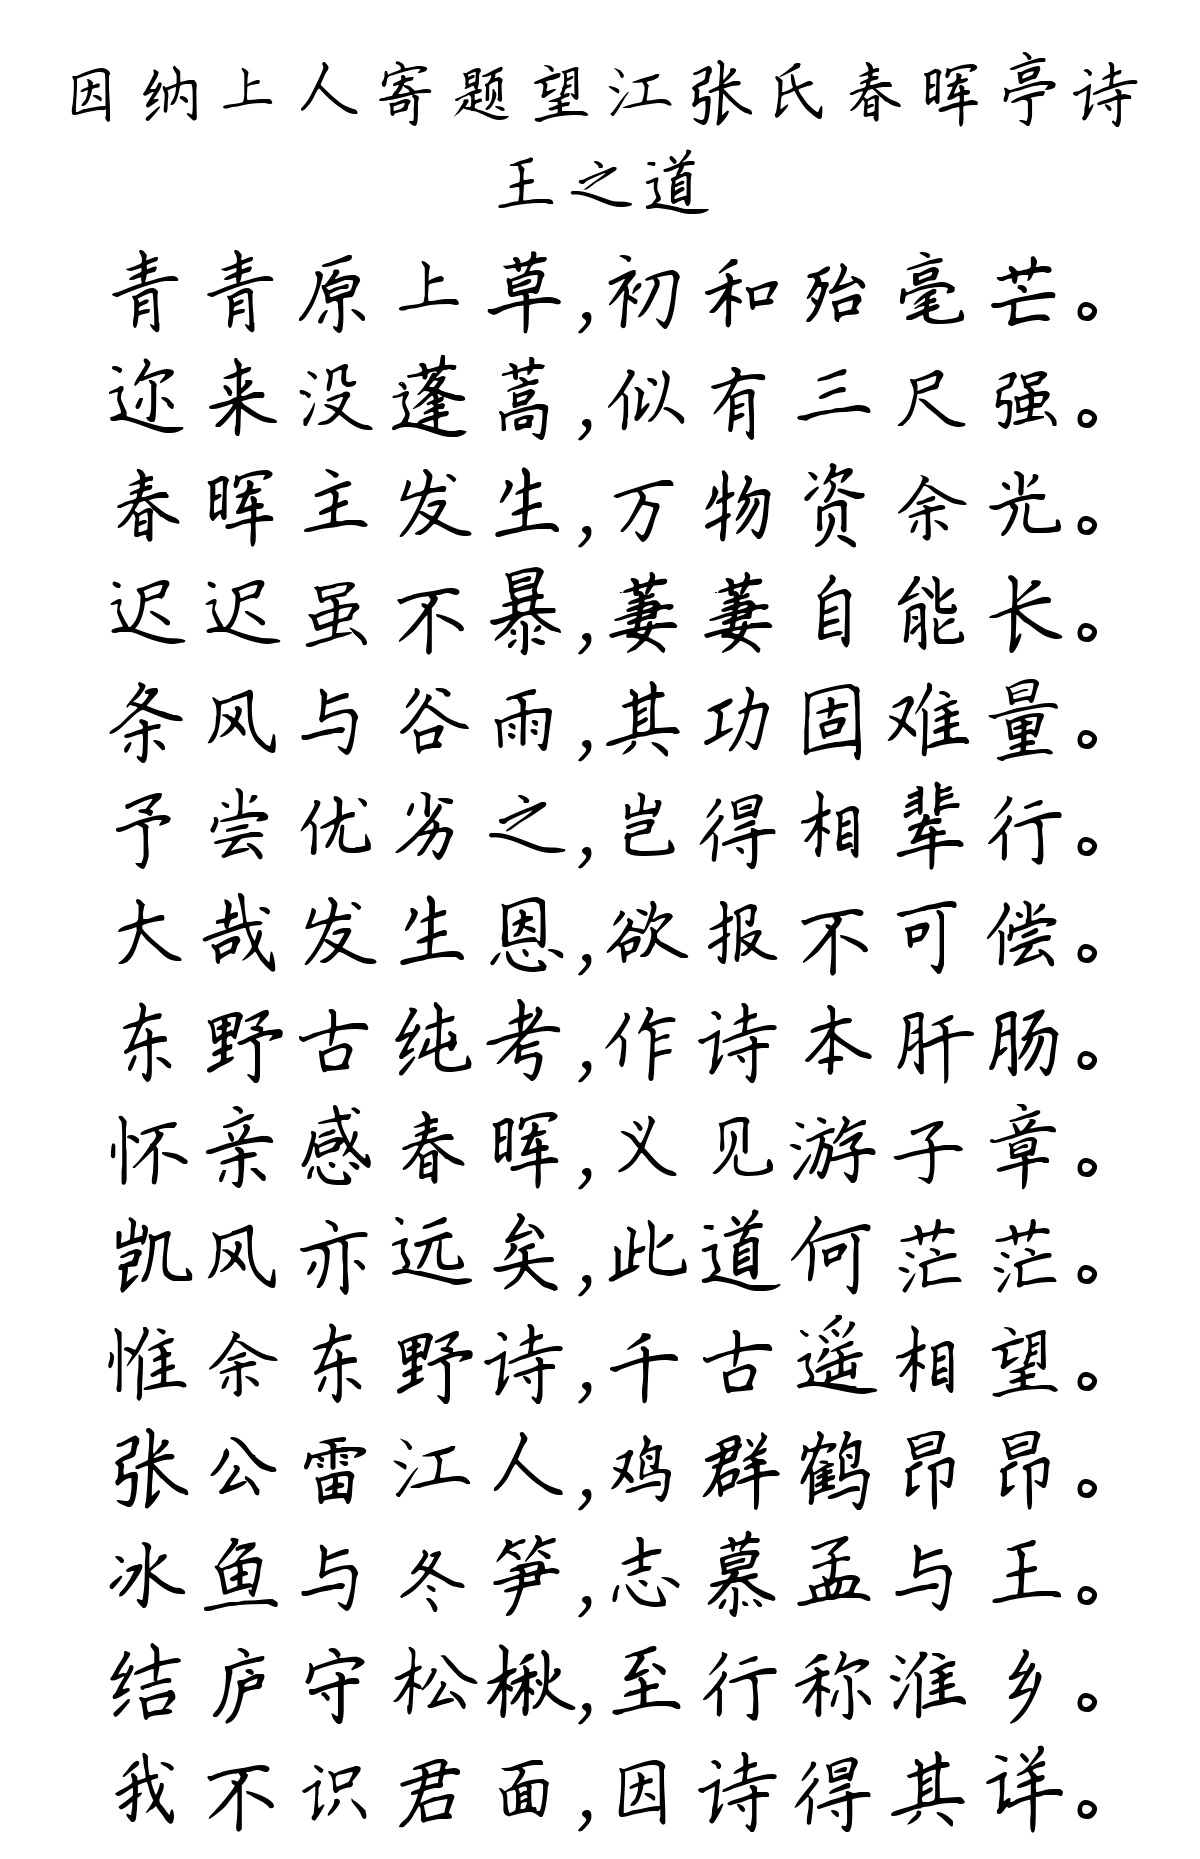 因纳上人寄题望江张氏春晖亭诗
王之道
青青原上草,初和殆毫芒。
迩来没蓬蒿,似有三尺强。
春晖主发生,万物资余光。
迟迟虽不暴,萋萋自能长。
条风与谷雨,其功固难量。
予尝优劣之,岂得相辈行。
大哉发生恩,欲报不可偿。
东野古纯考,作诗本肝肠。
怀亲感春晖,义见游子章。
凯风亦远矣,此道何茫茫。
惟余东野诗,千古遥相望。
张公雷江人,鸡群鹤昂昂。
冰鱼与冬笋,志慕孟与王。
结庐守松楸,至行称淮乡。
我不识君面,因诗得其详。